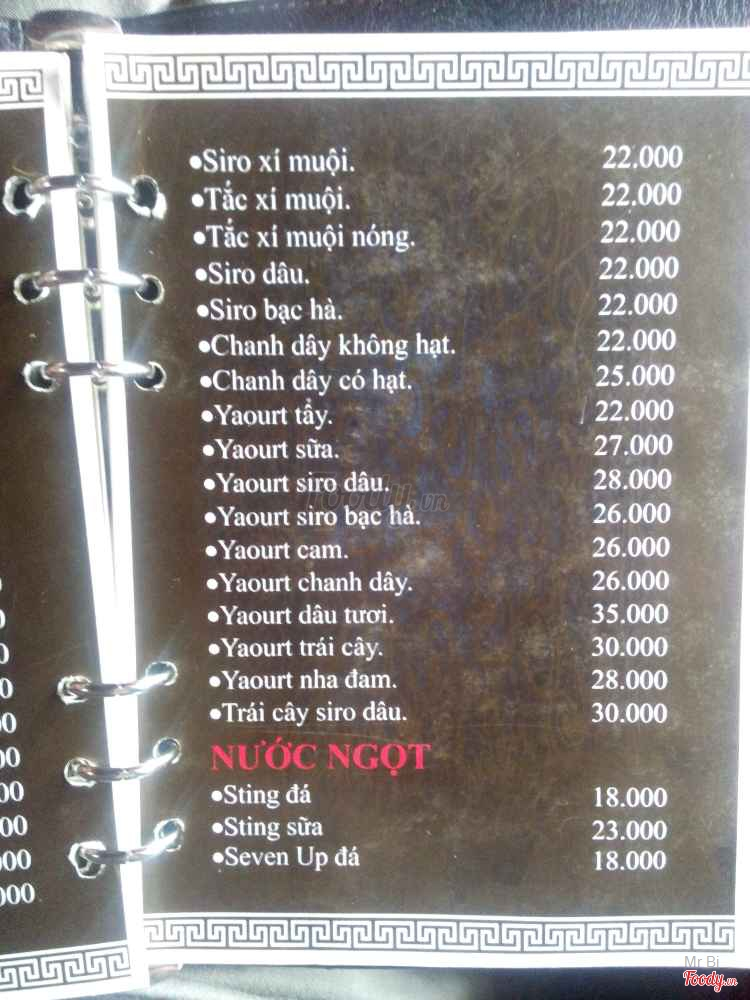 •Siro xí muội. 22.000
•Tắc xí muội. 22.000
•Tắc xí muội nóng. 22.000
•Siro dâu. 22.000
•Siro bạc hà. 22.000
•Chanh dây không hạt. 22.000
•Chanh dây có hạt. 25.000
•Yaourt tẩy. 22.000
•Yaourt sữa. 27.000
•Yaourt siro dâu. 28.000
•Yaourt siro bạc hà. 26.000
•Yaourt cam. 26.000
•Yaourt chanh dây. 26.000
•Yaourt dâu tươi. 35.000
•Yaourt trái cây. 30.000
•Yaourt nha đam. 28.000
•Trái cây siro dâu. 30.000
NƯỚC NGỌT
•Sting đá 18.000
•Sting sữa 23.000
•Seven Up đá 18.000
Foody.vn
Mr Bi
Foody.vn